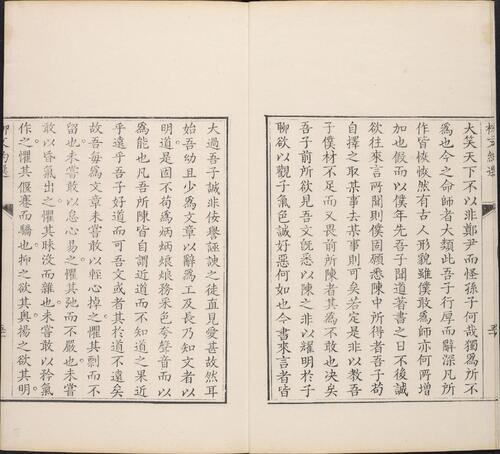 大笑天下不以非鄭尹而怪孫子何哉獨爲所不
爲也今之命師者大類此吾子行厚而辭深凡所
作皆恢恢然有古人形貌雖僕敢爲師亦何所增
加也假而以僕年先吾子聞道著書之日不後誠
欲往來言所聞則僕固願悉陳中所得者吾子苟
自擇之取某事去某事則可矣若定是非以教吾
子僕材不足而又畏前所陳者其爲不敢也决矣
吾子前所欲見吾文旣悉以陳之非以耀明於子
聊欲以觀子氣色誠好惡何如也今書來言者皆
大過吾子誠非佞譽誣諛之徒直見愛甚故然耳
始吾幼且少爲文章以辭爲工及長乃知文者以
明道是固不苟爲炳炳烺烺務采色夸聲音而以
爲能也凡吾所陳皆自謂近道而不知道之果近
乎遠乎吾子好道而可吾文或者其於道不遠矣
故吾每爲文章未嘗敢以輕心掉之懼其剽而不
留也未嘗敢以怠心易之懼其弛而不嚴也未嘗
敢以昏氣出之懼其昧沒而雜也未嘗敢以矜氣
作之懼其偃蹇而驕也抑之欲其奧揚之欲其明